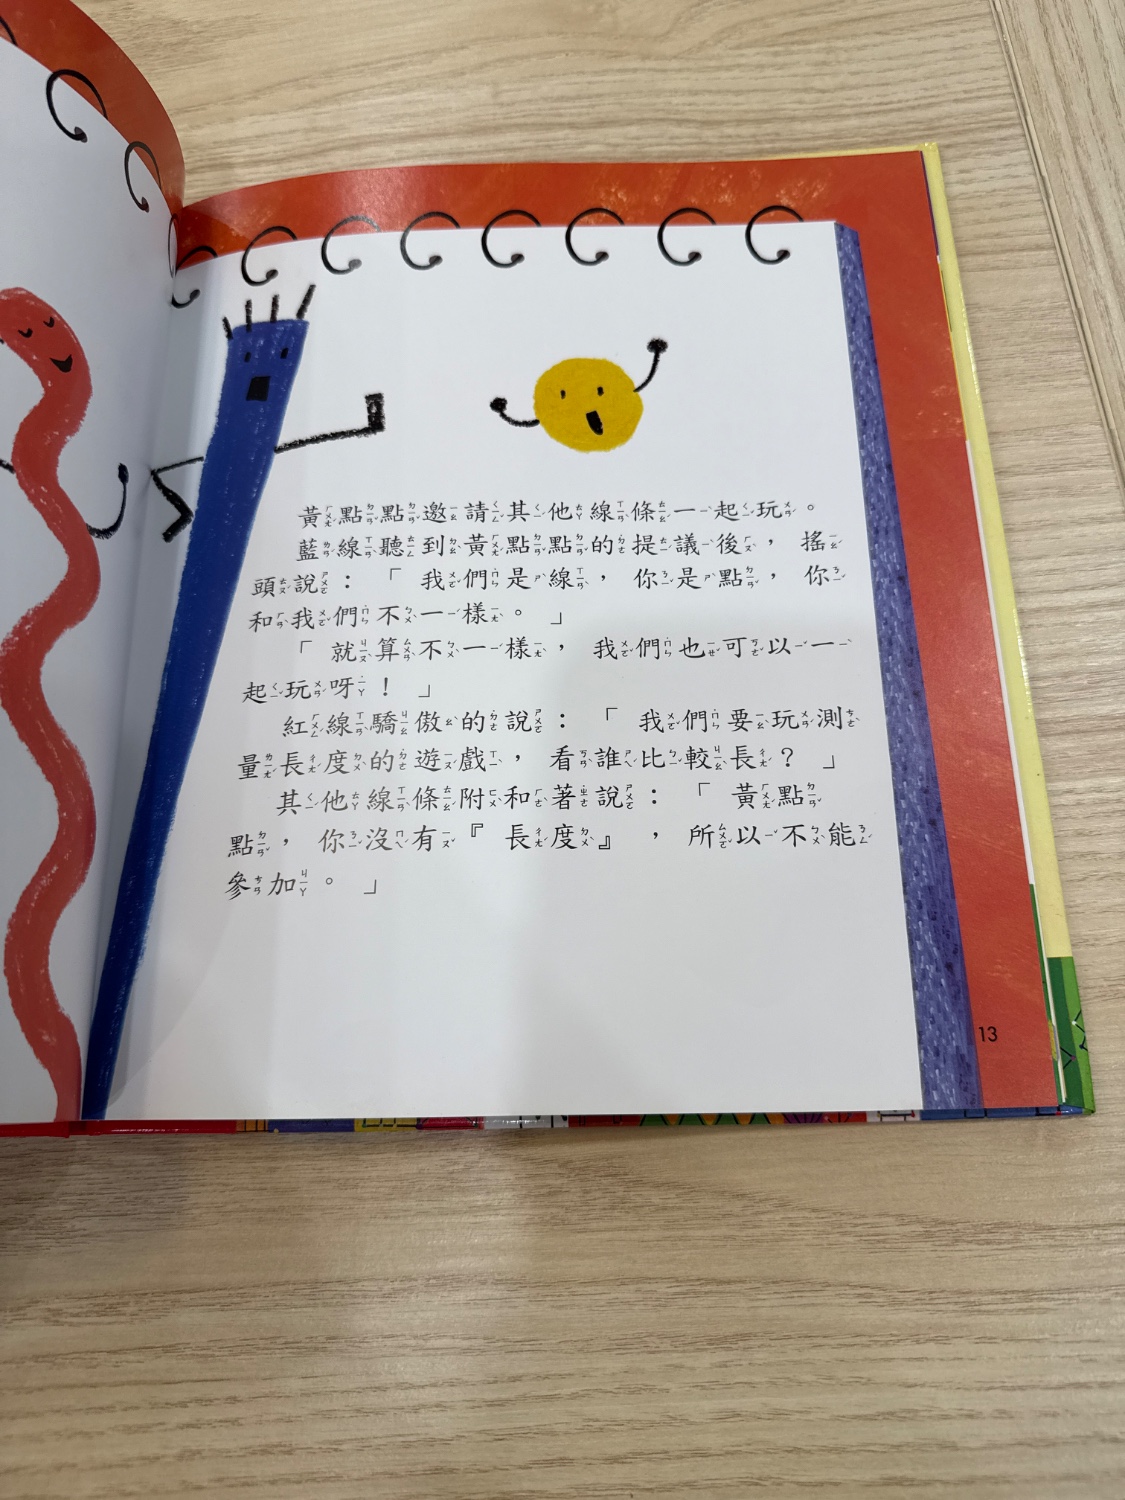 黃點點邀請其他線條一起玩。
藍線聽到黃點點的提議後，搖
頭說：「我們是線，你是點，你
和我們不一樣。」
「就算不一樣，我們也可以一
起玩呀！」
紅線驕傲的說：「我們要玩測
量長度的遊戲，看誰比較長？」
其他線條附和著說：「黃點
點，你沒有『長度』，所以不能
參加。」
13